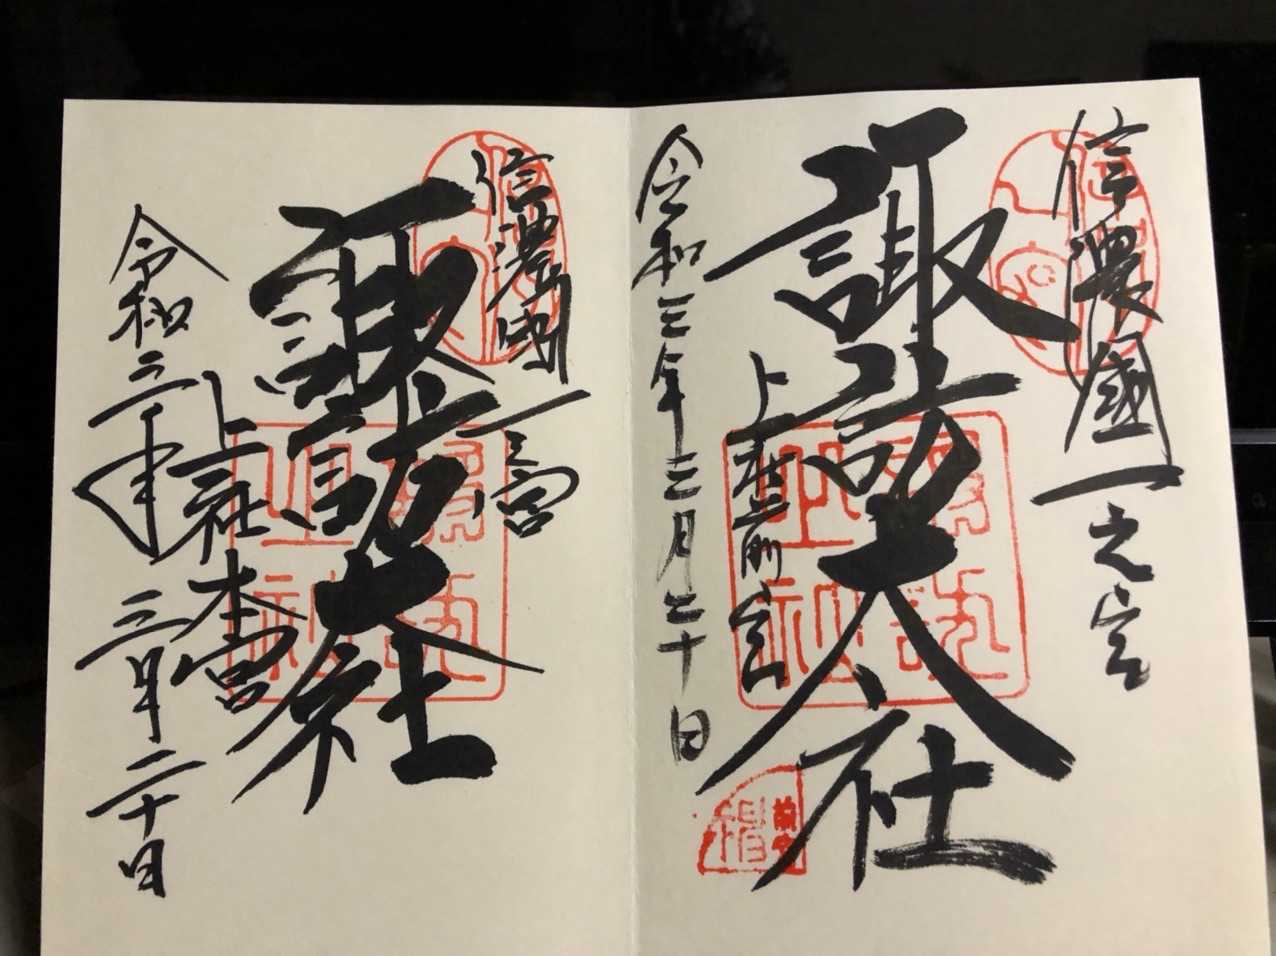 信濃國一之宮
諏訪大社
上社前宮
令和三年三月二十日
信濃國一之宮
諏訪大社
上社本宮
令和三年三月二十日